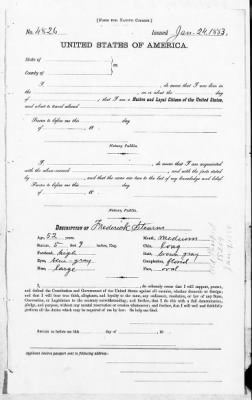 [FORM FOR NATIVE CITIZEN.]
No. 4826 Issued Jan. 24, 1883.
UNITED STATES OF AMERICA.
State of
County of
I, do swear that I was born in
the of on or about the day
of that I am a Native and Loyal Citizen of the United States,
and about to travel abroad
Sworn to before me this day
of 18
Notary Public.
I, do swear that I am acquainted
with the above-named and with the facts stated by
and that the same are true to the best of my knowledge and belief.
Sworn to before me this day
of 18
Notary Public.
DESCRIPTION OF Frederick Stearns
Age, 52 years. Mouth, medium
Stature, 5 feet 9 inches, Eng. Chin, long
Forehead, high Hair, brown gray
Eyes, blue gray Complexion, florid
Nose, large Face, oval
I, do solemnly swear that I will support, protect,
and defend the Constitution and Government of the United States against all enemies, whether domestic or foreign;
and that I will bear true faith, allegiance, and loyalty to the same, any ordinance, resolution, or law of any State,
Convention, or Legislature to the contrary notwithstanding; and further, that I do this with a full determination,
pledge, and purpose, without any mental reservation or evasion whatsoever; and further, that I will well and faithfully
perform all the duties which may be required of me by law: So help me God.
Sworn to before me this day of 18
Applicant desires passport to be sent to following address: